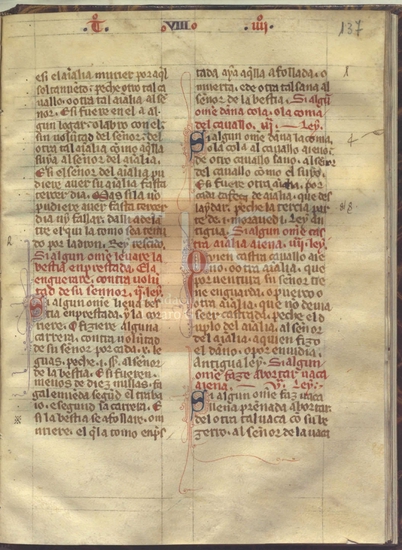 T VIII IIII 137
e si el aīalia muriere por aq̄l
soltamieto; peche otro tal ca
uallo. o otra tal aīalia al se
nor. E si fuere en el a al
gun logar. o labro con el.
sin uoluntad del senor. de
otra tal aīalia cōmo aq̄lla
suya al señor del aīalia.
E si el señor del aīalia pu
diere auer su aīalia fasta
tercer dia. Mas si la nō
pudiere auer fasta tercer
dia ny fallar. dall adelā
te el qui la tomo sea teni
do por ladron. Ley
Si algun om̄e leuare la
bestia enprestada. Ela
enguerare. contra volū
tad de su senor. ij. ley.
Si algun om̄e lieua bes
tia enprestada. y la co
riere. o fiziere alguna
carrera. contra voluntad
de su senor por cada. x. le
guas. peche. i. sł. al señor
de la bestia. E si fuere
menos de diez millas. fa
gale enmieda segūd el traba
io. e segund la carrera. E
si la bestia se afollare. o m
uriere. el q̄ la tomo enp̄s
tada aya aq̄lla afollada. o
muerta. e de otra tal sana al
señor de la bestia. Si algū
om̄e dāna cola. o la coma
del cauallo. iij. Ley.
Si algun om̄e dāna la coma.
o la cola al cauallo aieno;
de otro cauallo sano. al señor
del cauallo cōmo el suyo.
E si fuere otra aīalia. por
cada cabeça de aīalia. que des
laydar. peche la tercia par
te de. i. morauedi. Ley an
tigua. Si algun om̄e cas
tra aīalia aiena. iiij. ley.
Quien castra cauallo aie
no. o otra aīalia. que
por ventura su señor tie
ne enguarda. o puerco o
otra aīalia. que nō deuia
seer castrada. peche el do
uplo del aīalia. al señor
del aīalia. aquien fizo
el daño. o por enuidia.
antigua ley. Si algun
om̄e faze abortar uaca
aiena. v. Ley.
Si algun om̄e faz uaca
aiena preñada abortar.
de otra tal uaca cō su be
zerro. al señor de la uaca